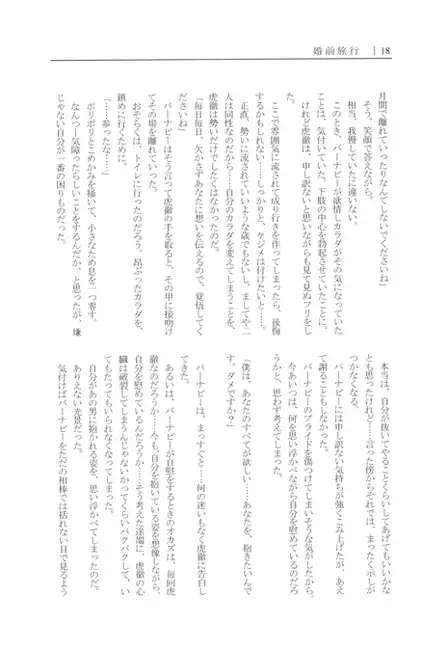 婚前旅行 | 18
月間で離れていったりなんてしないでくださいね」
そう、笑顔で答えながら。
相当、我慢していたに違いない。
このとき、バーナビーが欲情しカラダがその気になっていた
ことは、気付いていた。下肢の中心を勃起させていたことに。
けれど虎徹は、申し訳ないと思いながらも見て見ぬフリをし
た。
ここで雰囲気に流されて成り行きを作ってしまったら、後悔
するかもしれない……しっかりと、ケジメは付けたいと……。
正直、勢いに流されていいような歳でもないし、ましてや二
人は同性なのだから……自分のカラダを変えてしまうことを、
虎徹は勢いだけでしたくはなかったのだ。
「毎日毎日、欠かさずあなたに想いを伝えるので、覚悟してく
ださいね」
バーナビーはそう言って虎徹の手を取ると、その甲に接吻け
てその場を離れていった。
おそらくは、トイレに行ったのだろう。昂ぶったカラダを、
鎮めに行くために。
「……参ったな……」
ポリポリとこめかみを掻いて、小さなため息を一つ零す。
なんつー気障ったらしいことをするんだか、と思ったが、嫌
じゃない自分が一番の困りものだった。
本当は、自分が抜いてやることくらいしてあげてもいいかな
とも思ったけれど……言った傍からそれでは、まったく示しが
つかなくなる。
バーナビーには申し訳ない気持ちが強くこみ上げたが、あえ
て謝ることもしなかった。
バーナビーのプライドを傷つけてしまいそうな気がしたから。
今あいつは、何を思い浮かべながら自分を慰めているのだろ
うかと、思わず考えてしまった。
「僕は、あなたのすべてが欲しい……あなたを、抱きたいんで
す。ダメですか？」
バーナビーは、まっすぐと……何の迷いもなく虎徹に告白し
てきた。
あるいは、バーナビーが自慰をするときのオカズは、毎回虎
徹なのだろうか……今も自分を抱いている姿を想像しながら、
自分を慰めているんだろうか……そう考えた途端に、虎徹の心
臓は破裂してしまうんじゃないかってくらいバクバクして、い
てもたってもいられなくなってしまった。
自分があの男に抱かれる姿を、思い浮かべてしまったのだ。
ありえない光景だった。
気付けばバーナビーをただの相棒では括れない目で見るよう